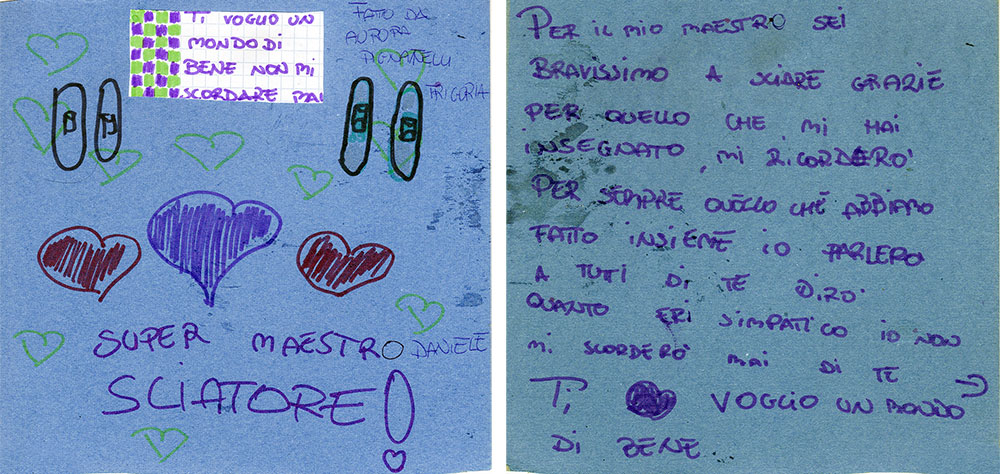 TI VOGLIO UN
MONDO DI
BENE NON MI
SCORDARE MAI
FATO DA
AURORA
PIGNATELLI
TRIGORIA
SUPER MAESTRO DANIELE
SCIATORE!
PER IL MIO MAESTRO SEI
BRAVISSIMO A SCIARE GRAZIE
PER QUELLO CHE MI HAI
INSEGNATO, MI RICORDERO'
PER SEMPRE QUELLO CHE ABBIAMO
FATTO INSIEME IO PARLERO
A TUTTI DI TE DIRO'
QUANTO ERI SIMPATICO IO NON
MI SCORDERO' MAI DI TE
TI, VOGLIO UN MONDO
DI BENE